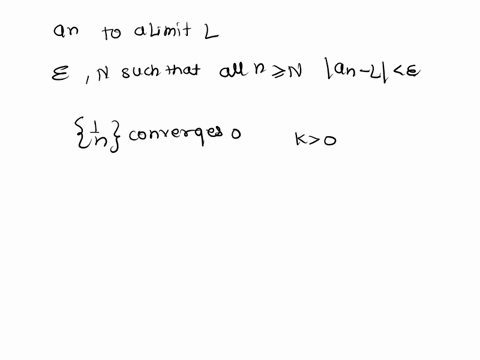 an to a limit L
ε, N such that all n ≥ N |an-L| < ε
{1/n} converges 0 K>0